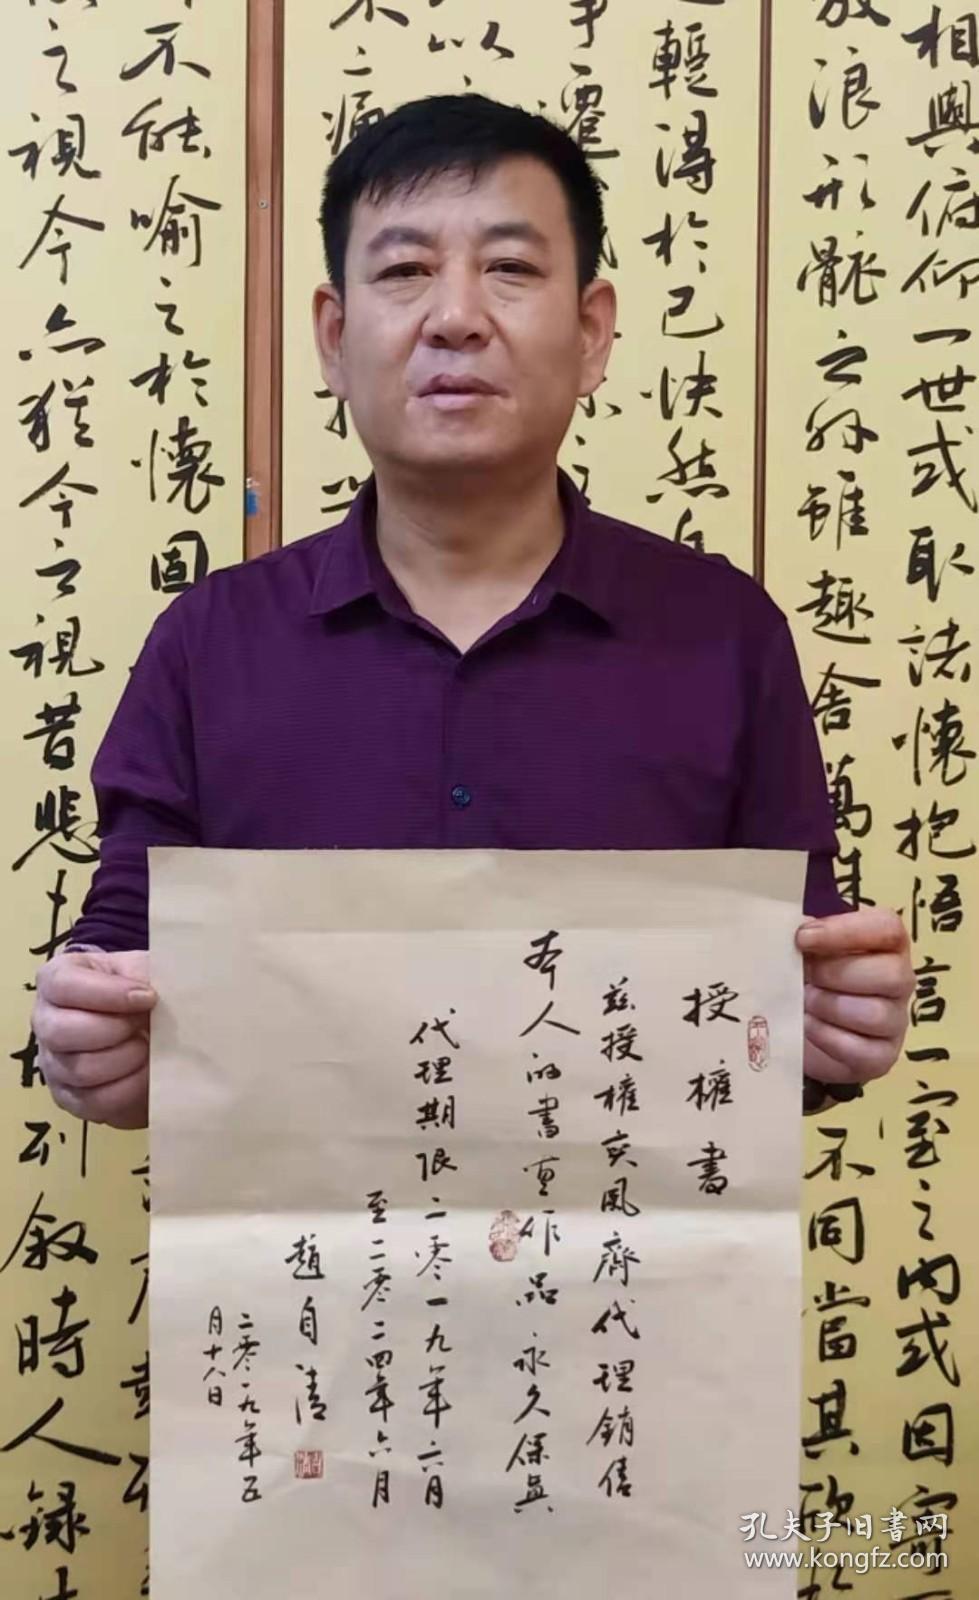 相與俯仰一世或取諸懷抱悟言一室之內或因寄
放浪形骸之外雖趣舍萬殊
不同當其欣於
輕得於己快然自
不能喻之於懷固
之視今亦猶今之視昔悲
敘時人錄
授權書
茲授權爽風齋代理銷售
本人的書画作品永久保真
代理期限二零一九年六月
至二零二四年六月
趙自清
二零一九年五
月十八日
孔夫子旧書网
www.kongfz.com